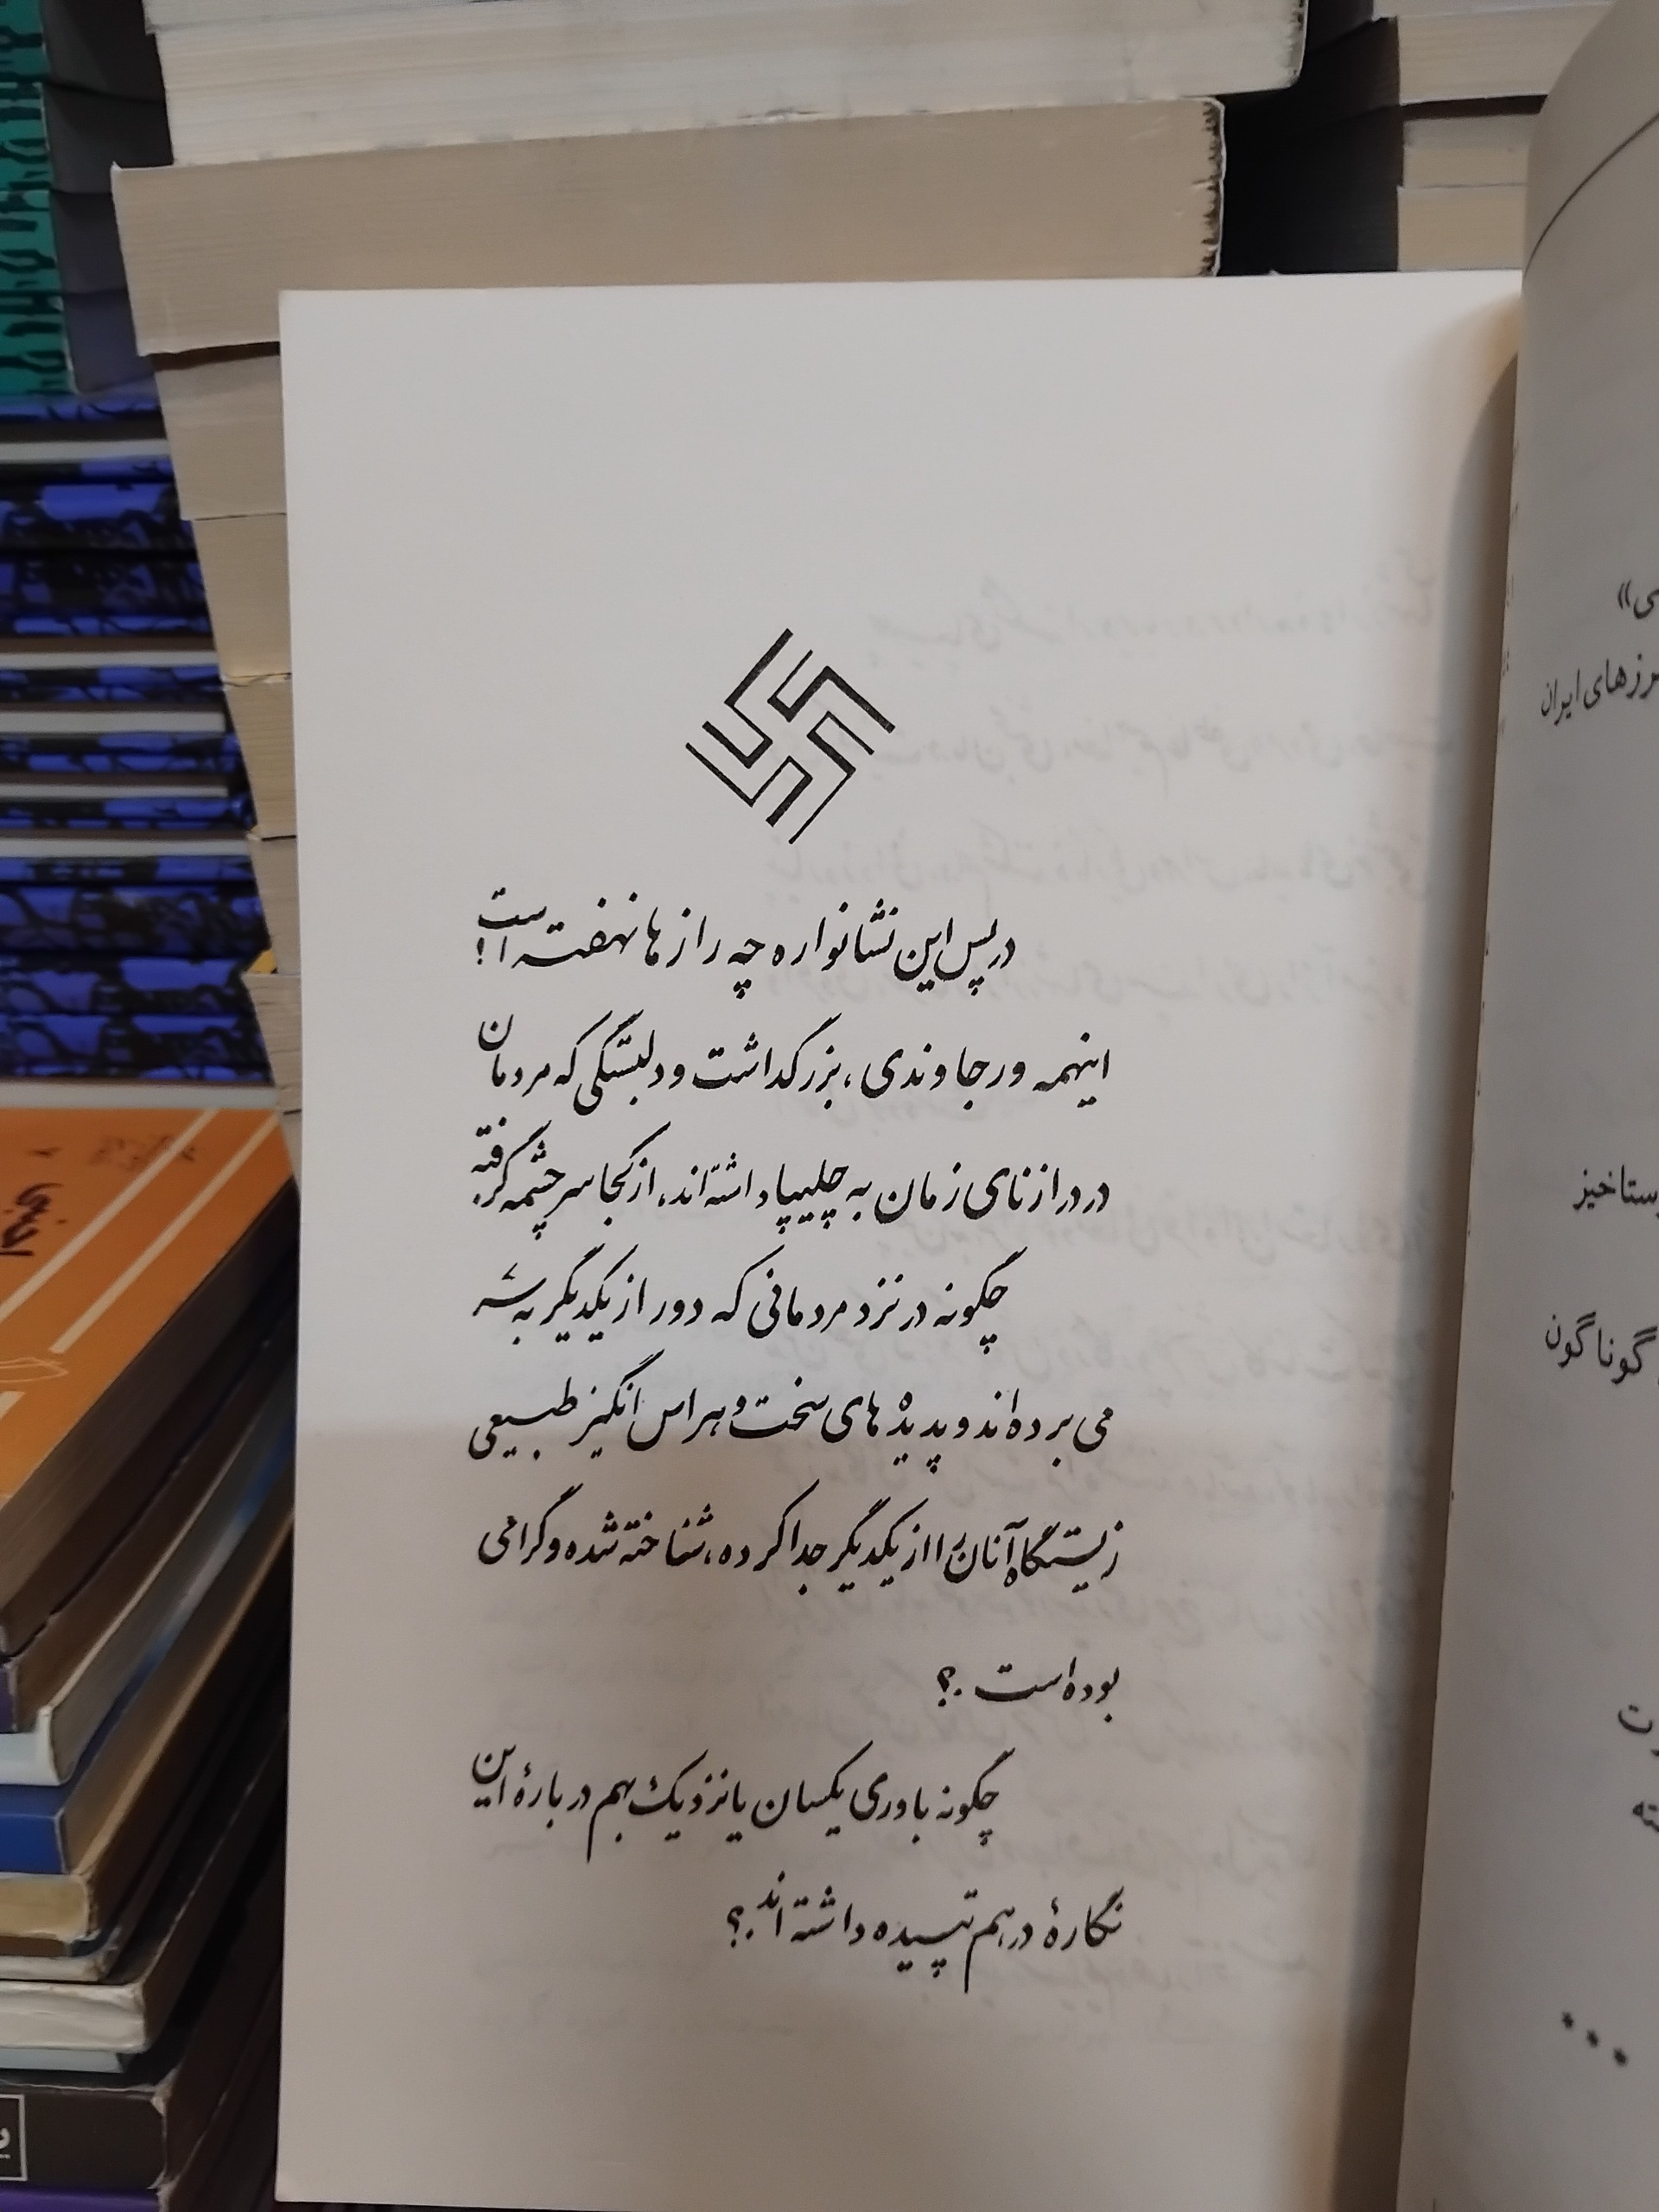 در پس این نشانواره چه رازها نهفته است!
اینهمه ورجاوندی، بزرگداشت و دلبستگی که مردمان
در درازنای زمان به چلیپا داشته‌اند، از کجا سرچشمه گرفته.
چگونه در نزد مردمانی که دور از یکدیگر بسر
می برده‌اند و پدیده های سخت و هراس انگیز طبیعی
زیستگاه آنان را از یکدیگر جدا کرده، شناخته شده و گرامی
بوده است.؟
چگونه باوری یکسان یا نزدیک بهم درباره این
نگاره درهم تپسیده داشته اند.؟
مرزهای ایران
رستاخیز
گوناگون
* * *